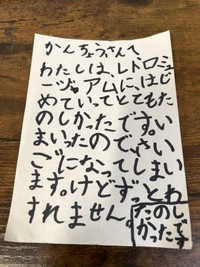 かんちょうさんえ
わたしは、レトロミュ
ージアムに、はじ
めていってとてもた
のしかったです。い
まいったのでさい
ごになってしまい
ます。けどずっとわ
すれません。
たのし
かった
です